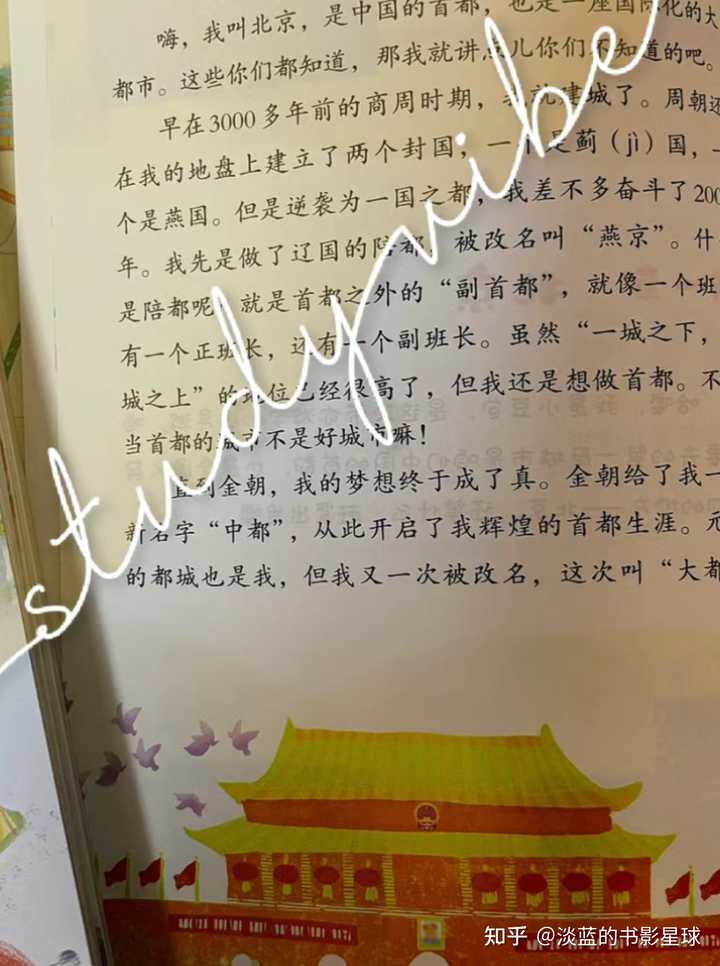 嗨，我叫北京，是中国的首都，也是一座国际化的大
都市。这些你们都知道，那我就讲点儿你们不知道的吧。
早在3000多年前的商周时期，我就建城了。周朝还
在我的地盘上建立了两个封国，一个是蓟（jì）国，一
个是燕国。但是逆袭为一国之都，我差不多奋斗了200
年。我先是做了辽国的陪都，被改名叫“燕京”。什
是陪都呢？就是首都之外的“副首都”，就像一个班
有一个正班长，还有一个副班长。虽然“一城之下，
城之上”的地位已经很高了，但我还是想做首都。不
当首都的城市不是好城市嘛！
直到金朝，我的梦想终于成了真。金朝给了我一
新名字“中都”，从此开启了我辉煌的首都生涯。元
的都城也是我，但我又一次被改名，这次叫“大都
studyvibe
知乎 @淡蓝的书影星球